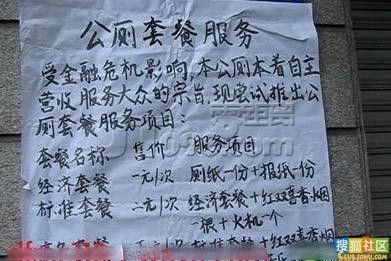 公厕套餐服务
受金融危机影响,本公厕本着自主
营收服务大众的宗旨,现尝试推出公
厕套餐服务项目:
套餐名称 售价 服务项目
经济套餐 一元/次 厕纸一份+报纸一份
标准套餐 二元/次 经济套餐+红双喜香烟
一根+火机一个
套餐 元/次 标准套餐+红双喜香烟
搜狐社区
CLUB.SOHU.COM